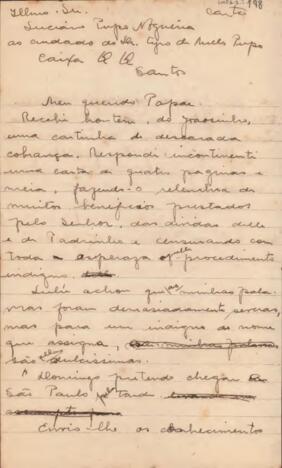 Illmo. Sr. Carta 198
Luciano Pupo Nogueira
ao cuidado do Sr. de Mello Pupo
Caixa
Santos
Meu querido Papae
Recebi hontem, do Joãosinho,
uma cartinha de descarada
cobrança. Respondi incontinenti
uma carta de quatro paginas e
meia, fazendo-o relembrar de
muitos beneficios prestados
pelo Senhor, das dividas delle
e de Padrinho e censurando com
toda aspereza procedimento
indigno.
achou que minhas pala
vras foram demasiadamente severas,
mas para um indigno do nome
que assigna,
são ellas dulcissimas.
Domingo pretendo chegar
São Paulo tarde
Envio-lhe os conhecimento